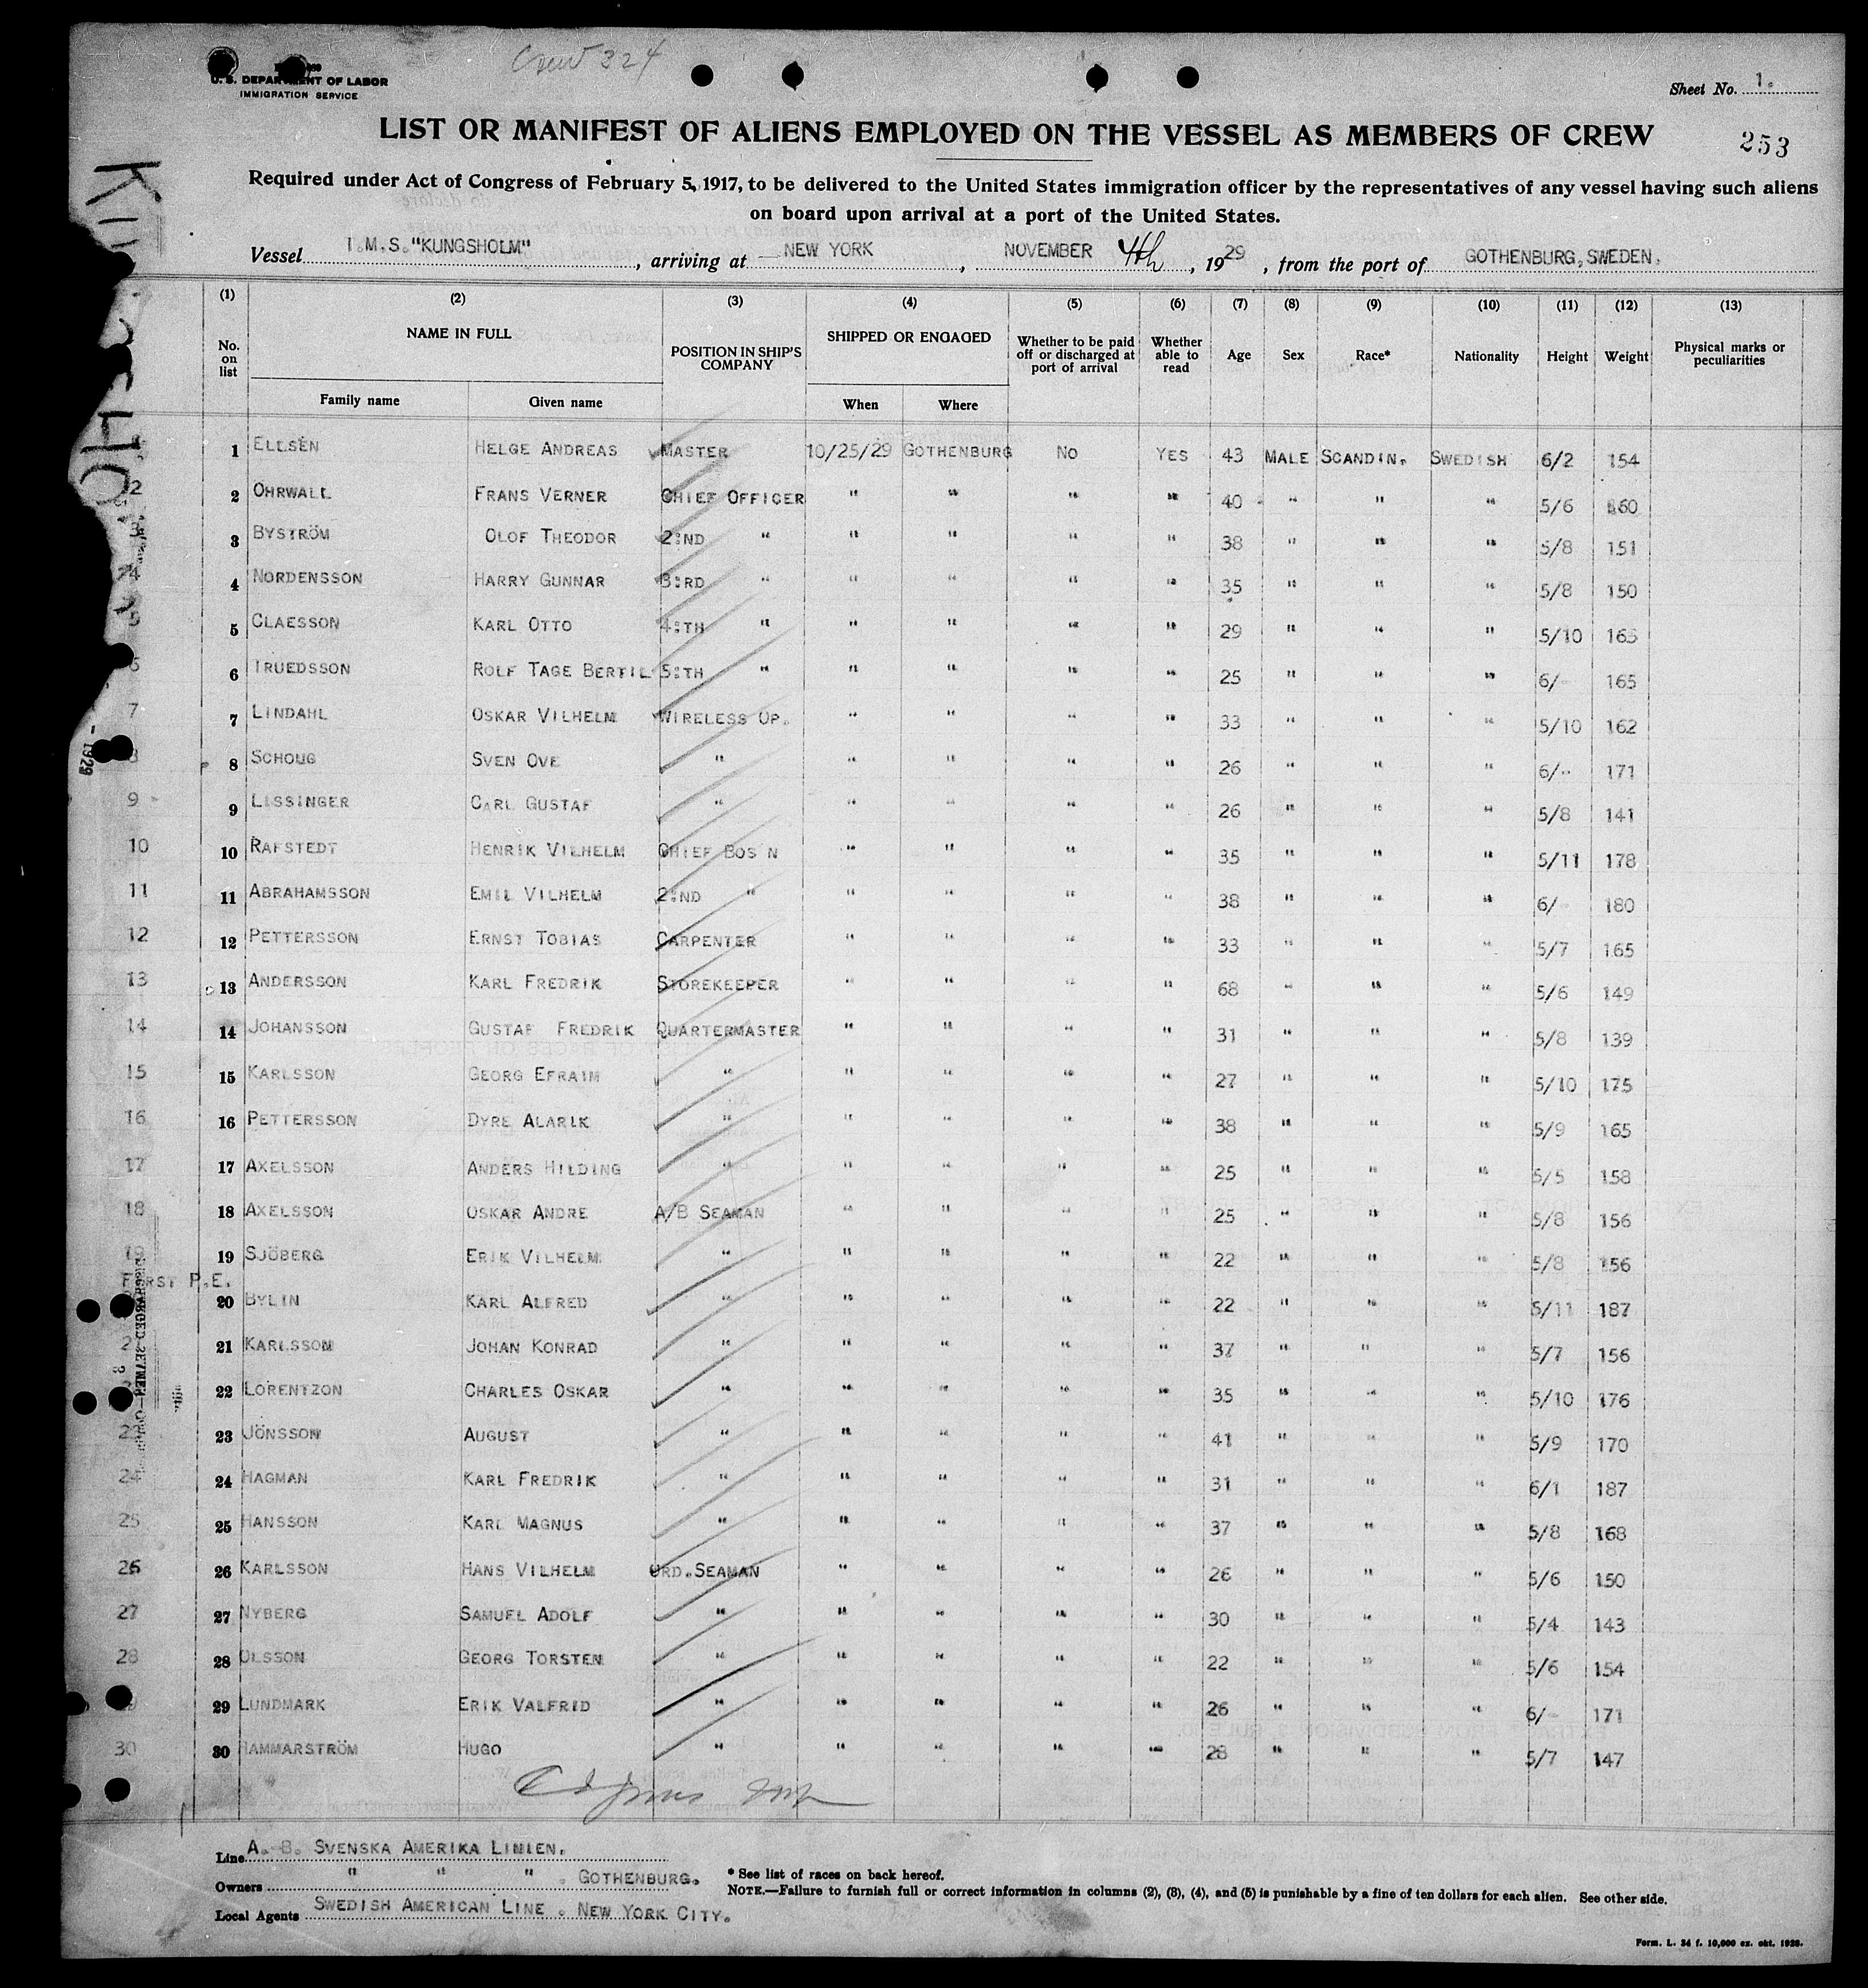 Crew 324
U. S. DEPARTMENT OF LABOR
IMMIGRATION SERVICE
Sheet No. 1.
LIST OR MANIFEST OF ALIENS EMPLOYED ON THE VESSEL AS MEMBERS OF CREW
253
Required under Act of Congress of February 5, 1917, to be delivered to the United States immigration officer by the representatives of any vessel having such aliens
on board upon arrival at a port of the United States.
Vessel T.M.S. "KUNGSHOLM", arriving at NEW YORK, NOVEMBER 4th, 1929, from the port of GOTHENBURG, SWEDEN.
(1) (2) (3) (4) (5) (6) (7) (8) (9) (10) (11) (12) (13)
No. on list NAME IN FULL POSITION IN SHIP'S COMPANY SHIPPED OR ENGAGED Whether to be paid off or discharged at port of arrival Whether able to read Age Sex Race* Nationality Height Weight Physical marks or peculiarities
Family name Given name When Where
1 ELLSÉN HELGE ANDREAS MASTER 10/25/29 GOTHENBURG NO YES 43 MALE SCANDIN. SWEDISH 6/2 154
2 2 OHRWALL FRANS VERNER CHIEF OFFICER " " " " 40 " " " 5/6 160
3 3 BYSTRÖM OLOF THEODOR 2:ND " " " " " 38 " " " 5/8 151
4 4 NORDENSSON HARRY GUNNAR 3:RD " " " " " 35 " " " 5/8 150
5 5 CLAESSON KARL OTTO 4:TH " " " " " 29 " " " 5/10 165
6 6 TRUEDSSON ROLF TAGE BERTIL 5:TH " " " " " 25 " " " 6/- 165
7 7 LINDAHL OSKAR VILHELM WIRELESS OP. " " " " 33 " " " 5/10 162
8 8 SCHOUG SVEN OVE " " " " " 26 " " " 6/- 171
9 9 LISSINGER CARL GUSTAF " " " " " 26 " " " 5/8 141
10 10 RAFSTEDT HENRIK VILHELM CHIEF BOS'N " " " " 35 " " " 5/11 178
11 11 ABRAHAMSSON EMIL VILHELM 2:ND " " " " " 38 " " " 6/- 180
12 12 PETTERSSON ERNST TOBIAS CARPENTER " " " " 33 " " " 5/7 165
13 13 ANDERSSON KARL FREDRIK STOREKEEPER " " " " 68 " " " 5/6 149
14 14 JOHANSSON GUSTAF FREDRIK QUARTERMASTER " " " " 31 " " " 5/8 139
15 15 KARLSSON GEORG EFRAIM " " " " " 27 " " " 5/10 175
16 16 PETTERSSON DYRE ALARIK " " " " " 38 " " " 5/9 165
17 17 AXELSSON ANDERS HILDING " " " " " 25 " " " 5/5 158
18 18 AXELSSON OSKAR ANDRE A/B SEAMAN " " " " 25 " " " 5/8 156
19 19 SJÖBERG ERIK VILHELM " " " " " 22 " " " 5/8 156
FIRST P.E.
20 BYLIN KARL ALFRED " " " " " 22 " " " 5/11 187
21 KARLSSON JOHAN KONRAD " " " " " 37 " " " 5/7 156
22 LORENTZON CHARLES OSKAR " " " " " 35 " " " 5/10 176
23 23 JÖNSSON AUGUST " " " " " 41 " " " 5/9 170
24 24 HAGMAN KARL FREDRIK " " " " " 31 " " " 6/1 187
25 25 HANSSON KARL MAGNUS " " " " " 37 " " " 5/8 168
26 26 KARLSSON HANS VILHELM ORD. SEAMAN " " " " 26 " " " 5/6 150
27 27 NYBERG SAMUEL ADOLF " " " " " 30 " " " 5/4 143
28 28 OLSSON GEORG TORSTEN " " " " " 22 " " " 5/6 154
29 LUNDMARK ERIK VALFRID " " " " " 26 " " " 6/- 171
30 30 HAMMARSTRÖM HUGO " " " " " 28 " " " 5/7 147
1929
Line A.-B. SVENSKA AMERIKA LINIEN.
Owners " " " . GOTHENBURG.
Local Agents SWEDISH AMERICAN LINE . NEW YORK CITY.
* See list of races on back hereof.
NOTE.—Failure to furnish full or correct information in columns (2), (3), (4), and (5) is punishable by a fine of ten dollars for each alien. See other side.
Form. L. 34 f. 10,000 ex. okt. 1928.